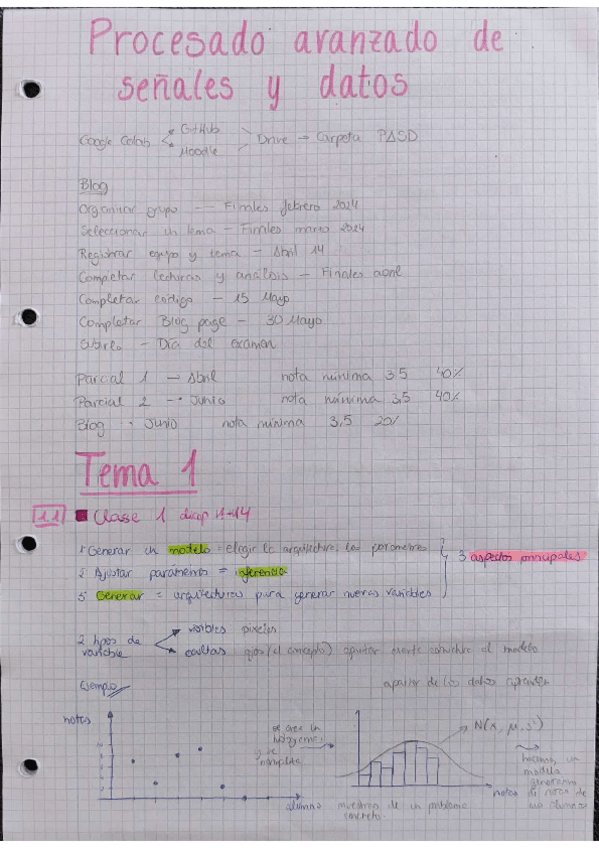 Procesado avanzado de
señales y datos
Google Colab GitHub Drive → Carpeta PASD
Moodle
Blog
Organizar grupo — Finales febrero 2024
Seleccionar un tema – Finales marzo 2024
Registrar equipo y tema – Abril 14
Completar lecturas y análisis – Finales abril
Completar código – 15 Mayo
Completar Blog page – 30 Mayo
– Día del examen
Parcial 1 → Abril nota mínima 3,5 40%
Parcial 2 → Junio nota mínima 3,5 40%
Blog · Junio nota mínima 3,5 20%
Tema 1
1.1 Clase 1 diap 1-14
1 Generar un modelo = elegir la arquitectura, los parametros
2 Ajustar parámetros = inferencia
3 aspectos principales
3 Generar = arquitecturas para generar nuevas variables
2 tipos de variable
visibles pixeles
ocultas ojos (el concepto)
el modelo
a partir de los datos
Ejemplo
notas
alumno
se crea un histograma
y se
N(x, μ, s²)
notas
muestras de un problema
concreto
modelo